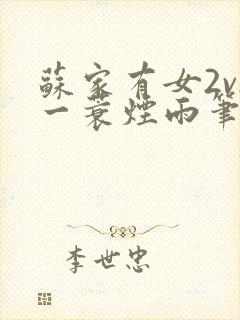 蘇家有女2v
一蓑煙雨筆
李世忠